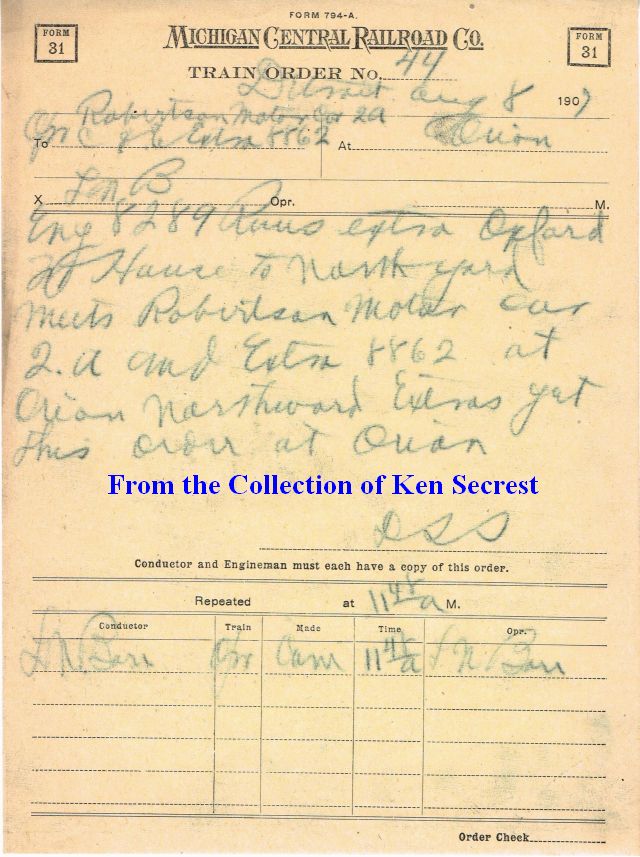 FORM 794-A.
FORM 31
MICHIGAN CENTRAL RAILROAD CO.
FORM 31
TRAIN ORDER NO. 44
Detroit Aug 8 1907
Robertson Motor Car 2a
To Opr C & E Extra 8862 At Orion
X L N B Opr. M.
Eng 8289 Runs extra Oxford
House to North yard
meets Robertson Motor car
2.a and Extra 8862 at
Orion Northward Extras get
this order at Orion
From the Collection of Ken Secrest
DSS
Conductor and Engineman must each have a copy of this order.
Repeated at 11 48 a M.
Conductor Train Made Time Opr.
L N Barr Opr Com 11 48 a L N Barr
Order Check